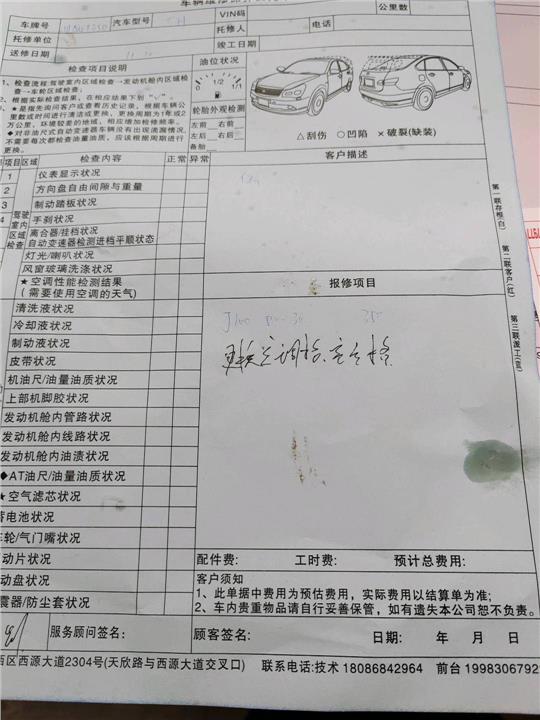 公里数
车牌号 汽车型号 VIN码
托修单位 托修人 电话
送修日期 竣工日期
检查项目说明
1、检查流程:驾驶室内区域检查→发动机舱内区域检查→车轮区域检查;
2、根据实际检查结果,在相应结果下划“√”。
3、★是指先询问客户或查看历史记录,根据车辆公里数或时间进行清洁或更换,更换周期为1年或2万公里,环境较差的地域,相应增加检修频率。
◆对非油尺式自动变速器车辆没有出现漏情况,不需要每次都检查油量油质,应该根据周期进行更换。
油位状况
0 1/2 1/1
轮胎外观检测
左前 右前
左后 右后
备胎
△刮伤 ○凹陷 ×破裂(缺装)
项目 区域 检查内容 正常 异常
客户描述
1 仪表显示状况
2 方向盘自由间隙与重量
3 制动踏板状况
4 手刹状况
驾驶室内区域检查
离合器/挂档状况
自动变速器检测进档平顺状态
灯光/喇叭状况
风窗玻璃洗涤状况
★空调性能检测结果
(需要使用空调的天气)
报修项目
清洗液状况
冷却液状况
制动液状况
皮带状况
机油尺/油量油质状况
上部机脚胶状况
发动机舱内管路状况
发动机舱内线路状况
发动机舱内油渍状况
◆AT油尺/油量油质状况
★空气滤芯状况
蓄电池状况
车轮/气门嘴状况
动片状况
动盘状况
震器/防尘套状况
第一联存根(白)
第二联客户(红)
第三联派工(蓝)
配件费: 工时费: 预计总费用:
客户须知
1、此单据中费用为预估费用,实际费用以结算单为准;
2、车内贵重物品请自行妥善保管,如有遗失本公司恕不负责。
服务顾问签名: 顾客签名: 日期: 年 月 日
西区西源大道2304号(天欣路与西源大道交叉口) 联系电话:技术 18086842964 前台 1998306792